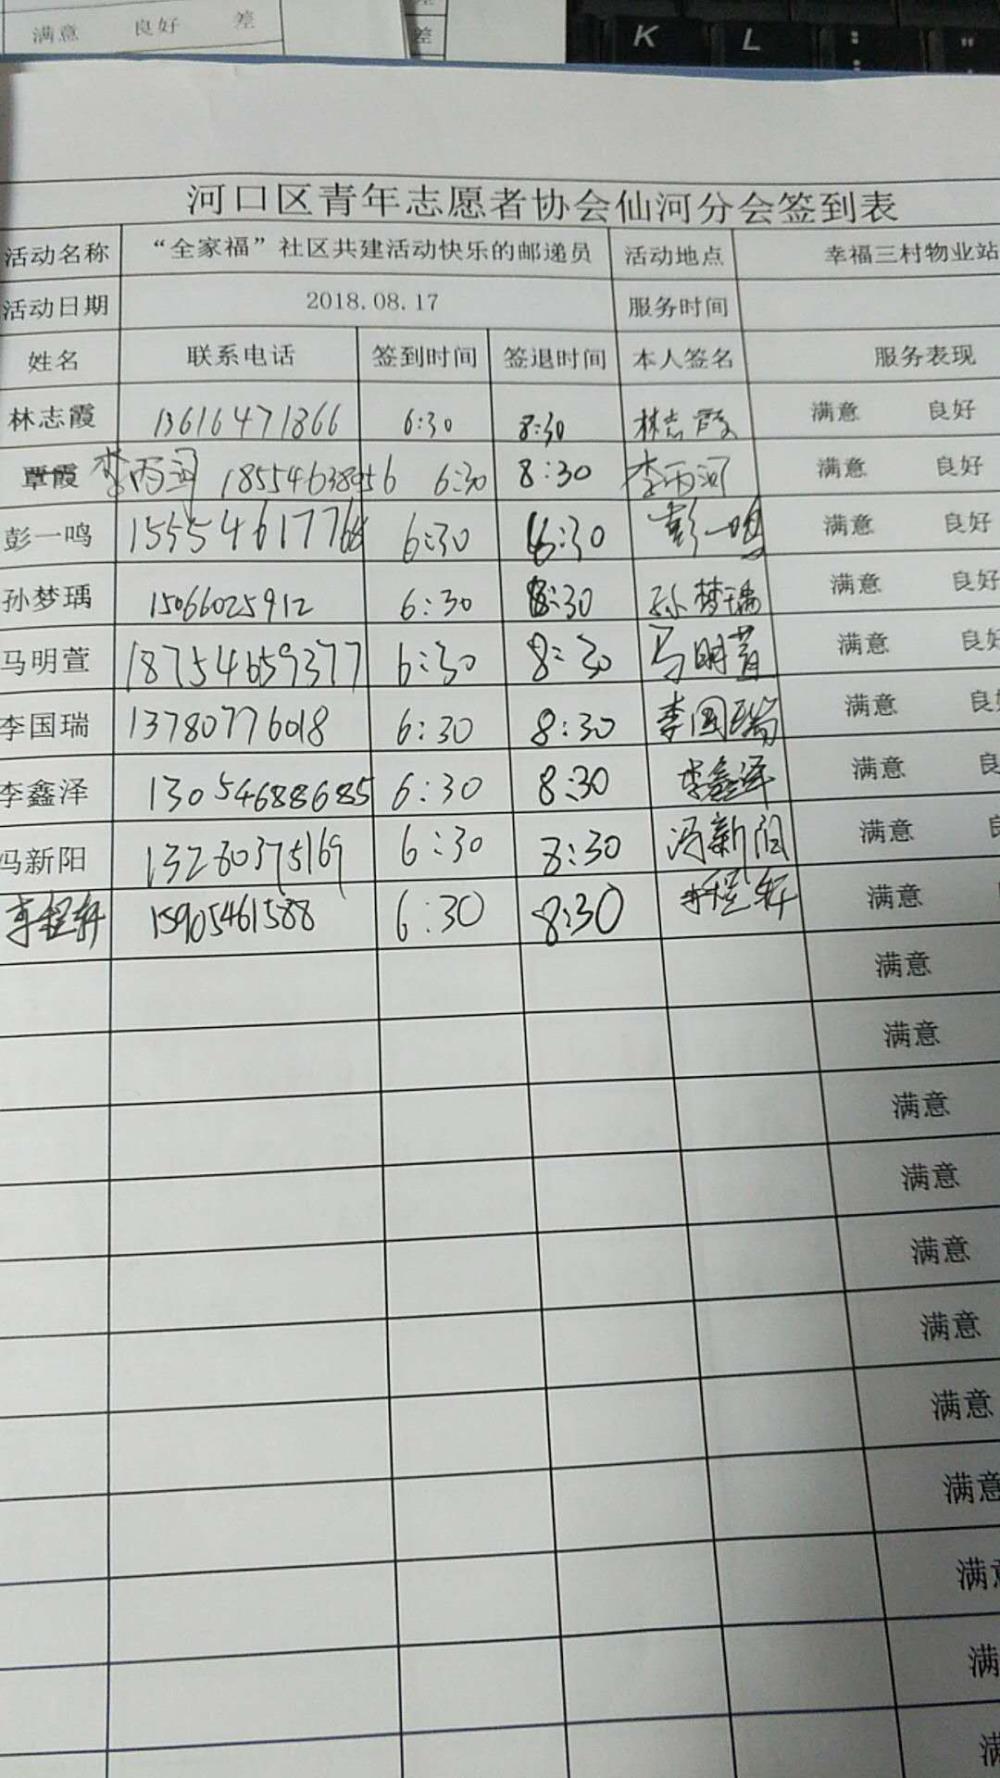 满意 良好 差
差
K L : ; "
河口区青年志愿者协会仙河分会签到表
活动名称 “全家福”社区共建活动快乐的邮递员 活动地点 幸福三村物业站
活动日期 2018.08.17 服务时间
姓名 联系电话 签到时间 签退时间 本人签名 服务表现
林志霞 13616471866 6:30 8:30 林志霞 满意 良好
覃霞 李丙河 18554638056 6:30 8:30 李丙河 满意 良好
彭一鸣 15554617768 6:30 8:30 彭一鸣 满意 良好
孙梦瑀 15066025912 6:30 8:30 孙梦瑀 满意 良好
马明萱 18754659377 6:30 8:30 马明萱 满意 良好
李国瑞 13780776018 6:30 8:30 李国瑞 满意 良
李鑫泽 13054688685 6:30 8:30 李鑫泽 满意 良
冯新阳 13280375169 6:30 8:30 冯新阳 满意
15905461588 6:30 8:30 满意
满意
满意
满意
满意
满意
满意
满意
满意
满
满